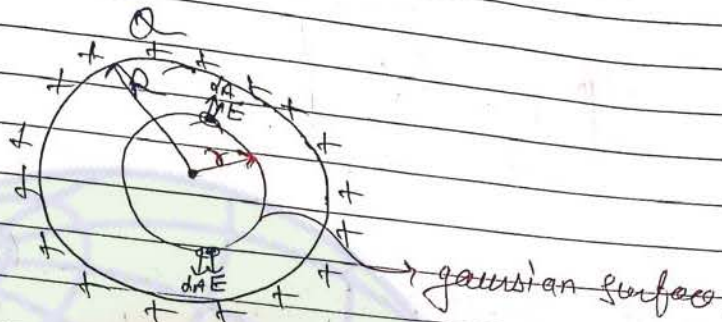 Q
R
dA
E
r
dA E
gaussian surface